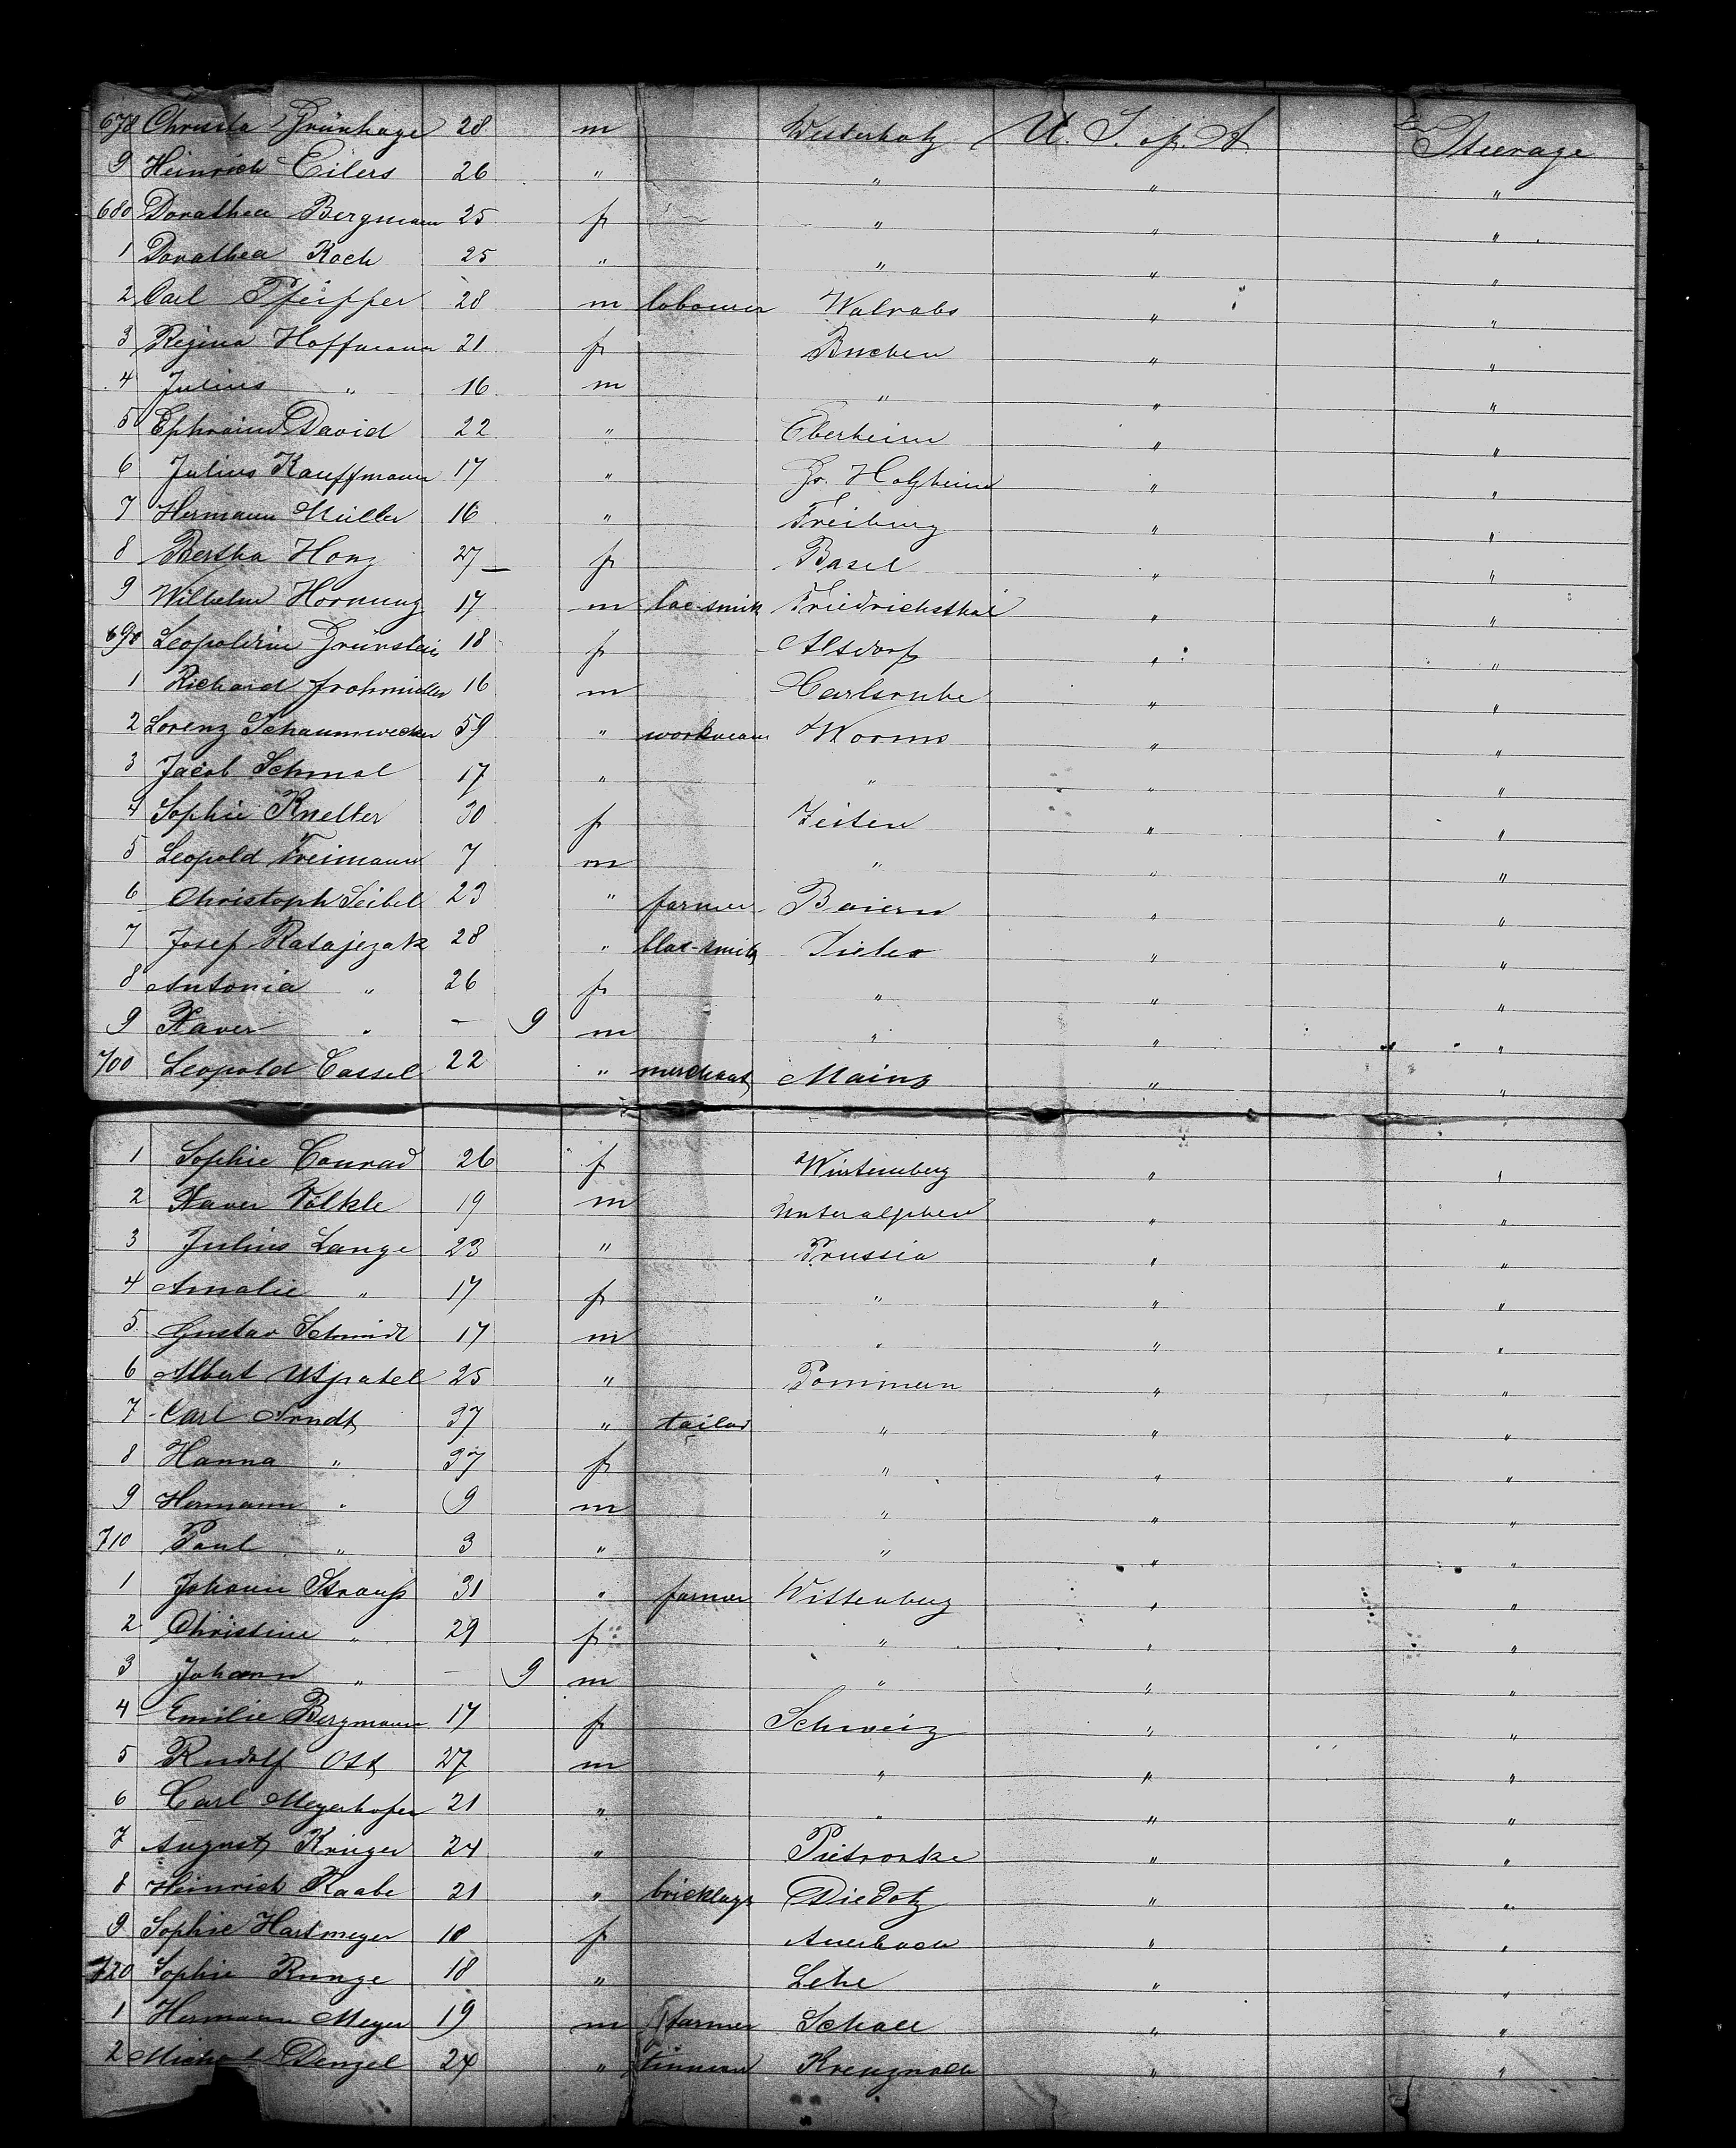 678 Christa Grünhage 28 m Westerholz U. S. of. A. Steerage
9 Heinrich Eilers 26 " " " "
680 Dorathea Bergmann 25 f " " "
1 Dorathea Koch 25 " " " "
2 Carl Pfeiffer 28 m labourer Walrabs " "
3 Regina Hoffmann 21 f Buchen " "
4 Julius " 16 m " " "
5 Ephraim David 22 " Eberheim " "
6 Julius Kauffmann 17 " Gr. Holzheim " "
7 Hermann Müller 16 " Freiburg " "
8 Bertha Honz 27 f Basel " "
9 Wilhelm Hornung 17 m loc-smith Friedrichsthal " "
690 Leopoldine Grünstein 18 f Alsdorf " "
1 Richard Frohmüller 16 m Carlsruhe " "
2 Lorenz Schaumwecker 59 " workman Worms " "
3 Jacob Schmal 17 " " " "
4 Sophie Knelter 30 f Zeiten " "
5 Leopold Freimann 7 m " " "
6 Christoph Seibel 23 " farmer Baiern " "
7 Josef Ratajezak 28 " blac-smith " "
8 Antonia " 26 f " " "
9 Xaver " — 9 m " " "
700 Leopold Cassel 22 " merchant Mainz " "
1 Sophie Conrad 26 f Würtemberg " "
2 Xaver Völkle 19 m Unteralphen " "
3 Julius Lange 23 " Prussia " "
4 Amalie " 17 f " " "
5 Gustav Schmidt 17 m " " "
6 Albert Utpatel 25 " Pommern " "
7 Carl Arndt 37 " tailor " " "
8 Hanna " 37 f " " "
9 Hermann " 9 m " " "
710 Paul " 3 " " " "
1 Johann Strauß 31 " farmer Wittenberg " "
2 Christine " 29 f " " "
3 Johann " — 9 m " " "
4 Emilie Bergmann 17 f Schweiz " "
5 Rudolf Ott 27 m " " "
6 Carl Meyerhofer 21 " " " "
7 August Krüger 24 " Pietronke " "
8 Heinrich Raabe 21 " bricklayr " "
9 Sophie Hartmeyer 18 f Auerbach " "
720 Sophie Runge 18 " Lehe " "
1 Hermann Meyer 19 m farmer Schale " "
2 Michael Denzel 24 " tinman Kreuznach " "